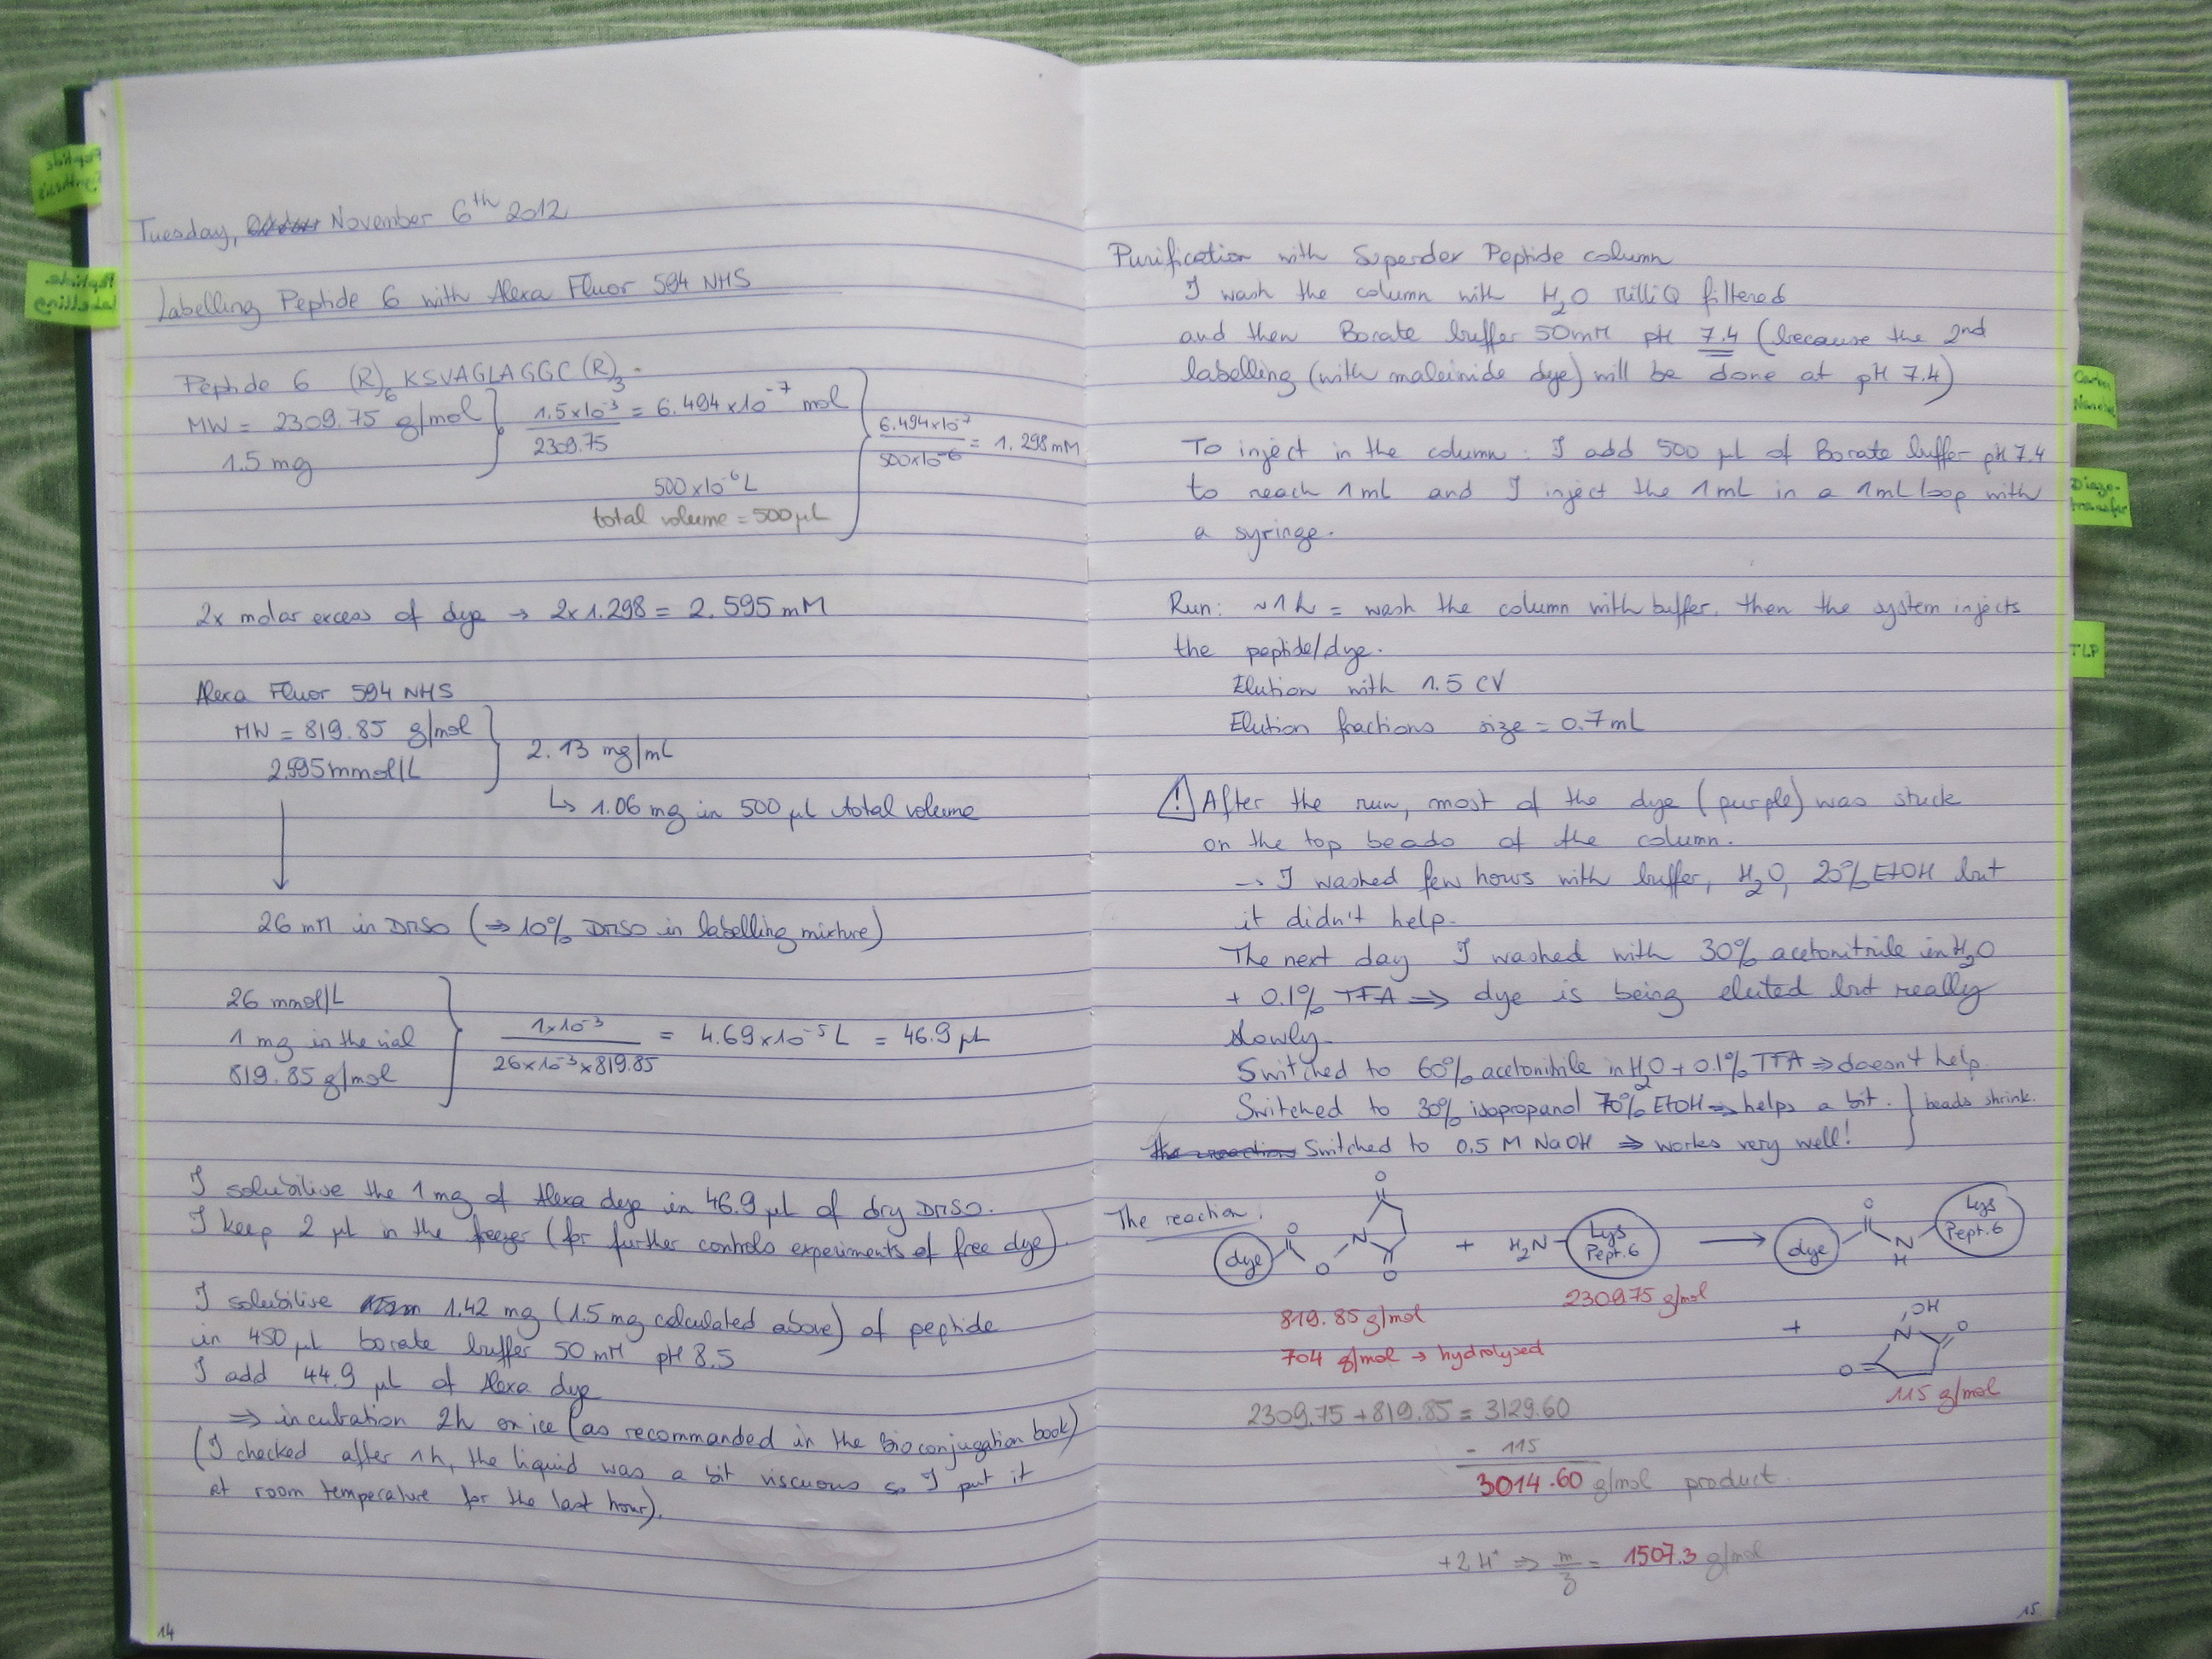 Tuesday, November 6th 2012
Labelling Peptide 6 with Alexa Fluor 594 NHS
Peptide 6 (R)6 KSVAGLAGGC (R)3.
MW = 2309.75 g/mol
1.5 mg
1.5x10-3 / 2309.75 = 6.494x10-7 mol
500x10-6 L
total volume = 500 µL
6.494x10-7 / 500x10-6 = 1.298 mM
2x molar excess of dye → 2x1.298 = 2.595 mM
Alexa Fluor 594 NHS
MW = 819.85 g/mol
2.595 mmol/L
2.13 mg/mL
↳ 1.06 mg in 500 µL total volume
26 mM in DMSO (⇒ 10% DMSO in labelling mixture)
26 mmol/L
1 mg in the vial
819.85 g/mol
1x10-3 / 26x10-3x819.85 = 4.69x10-5 L = 46.9 µL
I solubilise the 1 mg of Alexa dye in 46.9 µL of dry DMSO.
I keep 2 µL in the freezer (for further controls experiments of free dye).
I solubilise 1.42 mg (1.5 mg calculated above) of peptide
in 450 µL borate buffer 50 mM pH 8.5
I add 44.9 µL of Alexa dye
⇒ incubation 2h on ice (as recommanded in the Bioconjugation book)
(I checked after 1h, the liquid was a bit viscuous so I put it
at room temperature for the last hour).
14
Purification with Superdex Peptide column
I wash the column with H2O MilliQ filtered
and then Borate buffer 50 mM pH 7.4 (because the 2nd
labelling (with maleimide dye) will be done at pH 7.4)
To inject in the column: I add 500 µL of Borate buffer pH 7.4
to reach 1 mL and I inject the 1 mL in a 1 mL loop with
a syringe.
Run: ~1h = wash the column with buffer, then the system injects
the peptide/dye.
Elution with 1.5 CV
Elution fractions size = 0.7 mL
! After the run, most of the dye (purple) was stuck
on the top beads of the column.
→ I washed few hours with buffer, H2O, 20% EtOH but
it didn't help.
The next day I washed with 30% acetonitrile in H2O
+ 0.1% TFA ⇒ dye is being eluted but really
slowly.
Switched to 60% acetonitrile in H2O + 0.1% TFA ⇒ doesn't help.
Switched to 30% isopropanol 70% EtOH ⇒ helps a bit. } beads shrink.
The reaction Switched to 0.5 M NaOH ⇒ works very well!
The reaction:
dye O O N O O + H2N Lys Pept.6 → dye O N H Lys Pept.6
819.85 g/mol
2309.75 g/mol
704 g/mol → hydrolysed
+ OH N O O
115 g/mol
2309.75 + 819.85 = 3129.60
- 115
3014.60 g/mol product.
+2H+ ⇒ m/z = 1507.3 g/mol
15
Peptide Synthesis
Peptide Labelling
Diazo-transfer
TLP